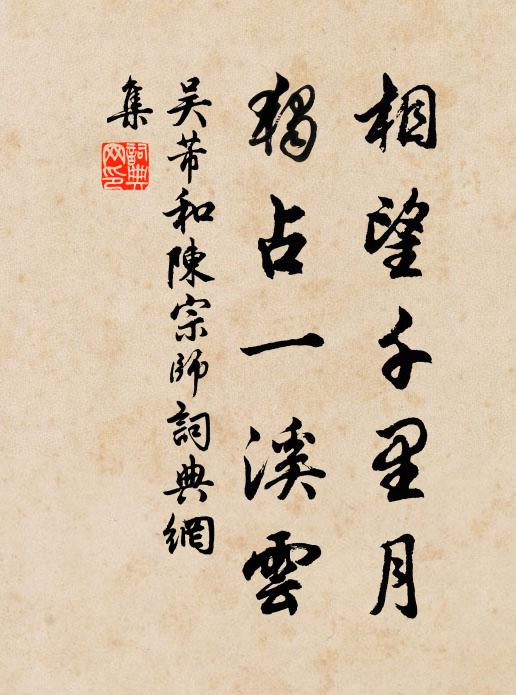 相望千里月
獨占一溪雲
吳芾和陳宗師詞典網
集
詞典
网印